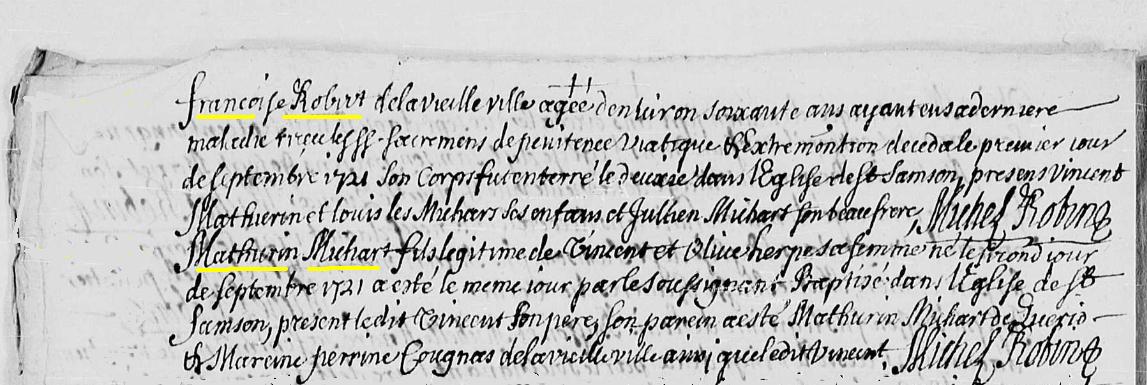 françoise Robert de la vieille ville agée denviron soixante ans ayant eu sa derniere
maladie reçeu les SS. sacremens de penitence viatique & Extremontion deceda le premier iour
de septembre 1721 son Corps fut enterré le deuxie dans l'Eglise de st Samson, presens Vincent
Mathurin et louis les Michars ses enfans et Jullien Michart son beaufrere, Michel Robin
Mathurin Michart fils legitime de Vincent et Olive herpe sa femme né le second iour
de septembre 1721 a esté le meme iour par le soussignant Baptisé dans l'Eglise de st
Samson, present ledit Vincent son pere, son parein a esté Mathurin Michart de
& Mareine perrine Cougnas de la vieille ville aussi que ledit Vincent, Michel Robin